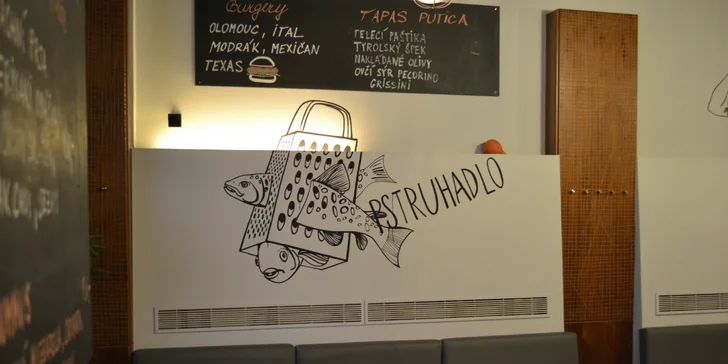 Burgery
OLOMOUC, ITAL
MODRÁK, MEXIČAN
TEXAS
TAPAS PUTICA
TELECÍ PAŠTIKA
TYROLSKÝ ŠPEK
NAKLÁDANÉ OLIVY
OVČÍ SÝR PECORINO
GRISSINI
PSTRUHADLO